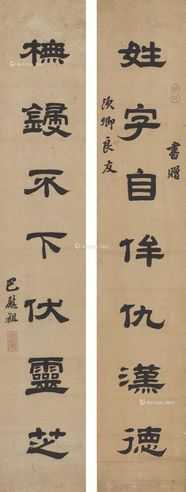 姓字自侔仇漢德
書贈
卿良友
橅鐫不下伏靈芝
巴慰祖